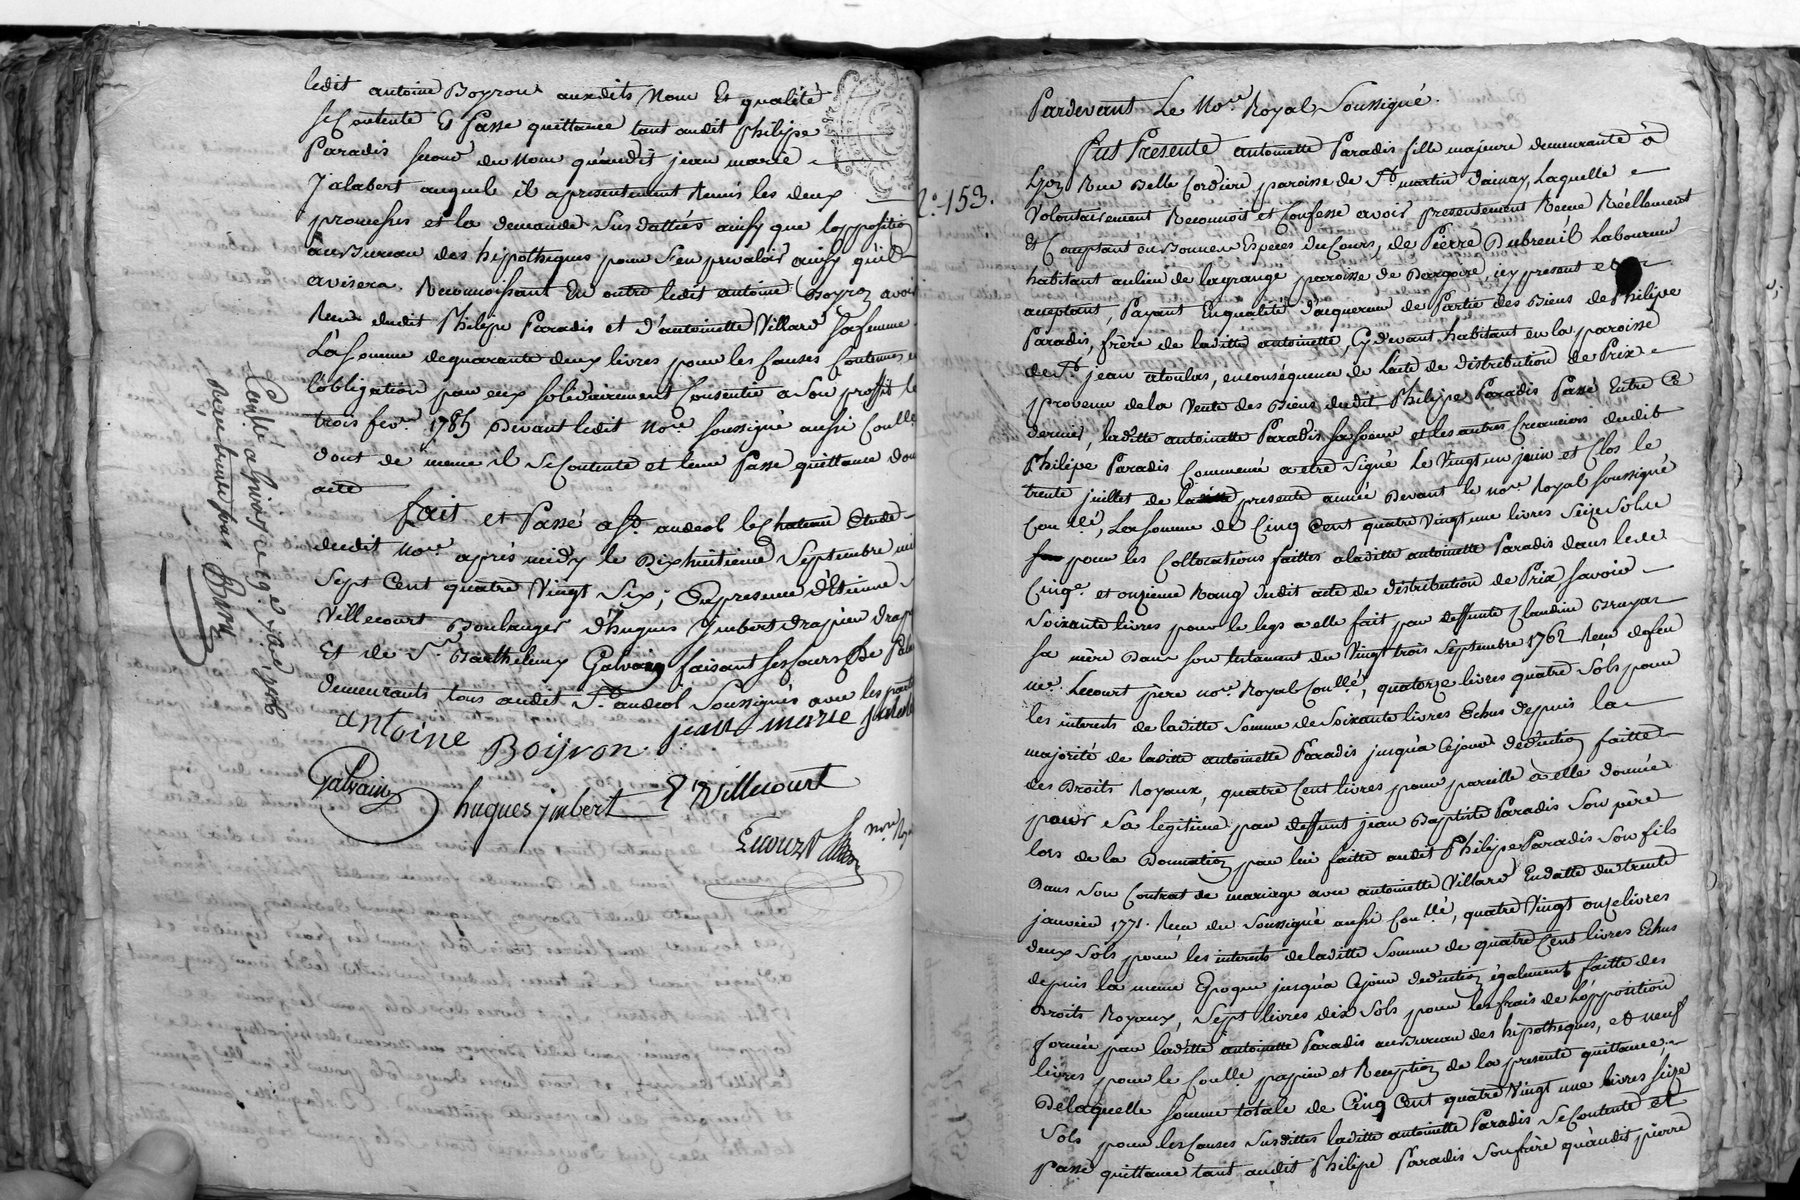 ledit antoine Boyron auxdits Nom Et qualité
se Contente Et Passe quittance tant audit Philipe
Paradis second du Nom qu'audit jean marie
Jalabert auquel il a presentement Remis les deux
promesses et la demande Susdattées ainsy que l'opposition
au Bureau des hipotheques pour s'en prevaloir ainsy qu'il
avisera. Reconnoissant En outre ledit antoine Boyron avoir
Reçu dudit Philipe Paradis et d'antoinette Villard Sa femme
La Somme de quarante deux livres pour les Causes Contenues en
l'obligation par eux solidairement Consentie a Son proffit le
trois fevr. 1785 Devant ledit Nore. soussigné aussi Conllé.
dont de même il Se Contente et leur Passe quittance dont
acte
fait et Passé a St. andeol le Chateau Etude
dudit Nore. après midy le Dixhuitieme Septembre mil
Sept Cent quatre Vingt Six; En presence d'Etienne
Villecourt Boulanger d'hugues jmbert drapier drap
Et de Sr. Barthelemy Galvain faisant Ses Cours De
demeurants tous audit St. andeol Soussignés avec les parties
antoine Boijron. jean marie jalabert
Galvain
hugues jmbert E Villecourt
Lecourt nore. Roy
Conllé a Givors ce 19 7bre 1786
Reçu trente sous
N°. 153.
Pardevant Le Nore. Royal Soussigné.
Fut Presente antoinette Paradis fille majeure demeurante à
Lyon Rue Belle Cordiere paroisse de St. martin dainay, Laquelle
Volontairement Reconnoit et Confesse avoir presentement Reçue Réellement
Et Comptant en Bonnes Especes du Cours, de Pierre Dubreuil Laboureur
habitant au lieu de lagrange paroisse de Dargoire, icy present et
acceptant, Payant En qualité d'acquereur de Partie des Biens de Philipe
Paradis, frère de laditte antoinette, Cy devant habitant en la paroisse
de St. jean atoulas, en conséquence de l'acte de distribution de Prix
provenu de la Vente des Biens dudit Philipe Paradis Passé Entre Ce
dernier, laditte antoinette Paradis Sa Soeur et les autres Creanciers dudit
Philipe Paradis Commencé a etre Signé Le Vingt un juin et Clos le
trente juillet de la presente année Devant le nore. Royal Soussigné
Conllé, La Somme de Cinq Cent quatre Vingt une livres Seize Sols
pour les Collocations faittes a laditte antoinette Paradis dans le
Cinqe. et onzieme Rang dudit acte de distribution de Prix Savoir
Soixante livres pour le legs a elle fait par deffunte Claudine Bruyas
Sa mère Dans Son testament du Vingt trois Septembre 1762 Reçu defeu
me. Lecourt père nore. Royal Conllé, quatorze livres quatre Sols pour
les interets de laditte Somme de Soixante livres Echus depuis la
majorité de laditte antoinette Paradis jusqu'à Ce jour deduction faitte
des Droits Royaux, quatre Cent livres pour pareille a elle donnée
pour Sa legitime par deffunt jean Baptiste Paradis Son père
lors de la Donnation par lui faitte audit Philipe Paradis Son fils
Dans Son Contrat de mariage avec antoinette Villard En datte du trente
janvier 1771. Reçu du Soussigné aussi Conllé, quatre Vingt onze livres
deux Sols pour les interets de laditte Somme de quatre Cent livres Echus
depuis la meme Epoque jusqu'a Cejour deduction également faitte des
Droits Royaux, Sept livres dix Sols pour les frais de L'opposition
formée par laditte antoinette Paradis au Bureau des hipotheques, et neuf
livres pour le Conlle. papier et Reception de la presente quittance,
De laquelle Somme totale de Cinq Cent quatre Vingt une livres Seize
Sols pour les Causes Susdittes laditte antoinette Paradis Se Contente et
passe quittance tant audit Philipe Paradis Son frère qu'audit pierre